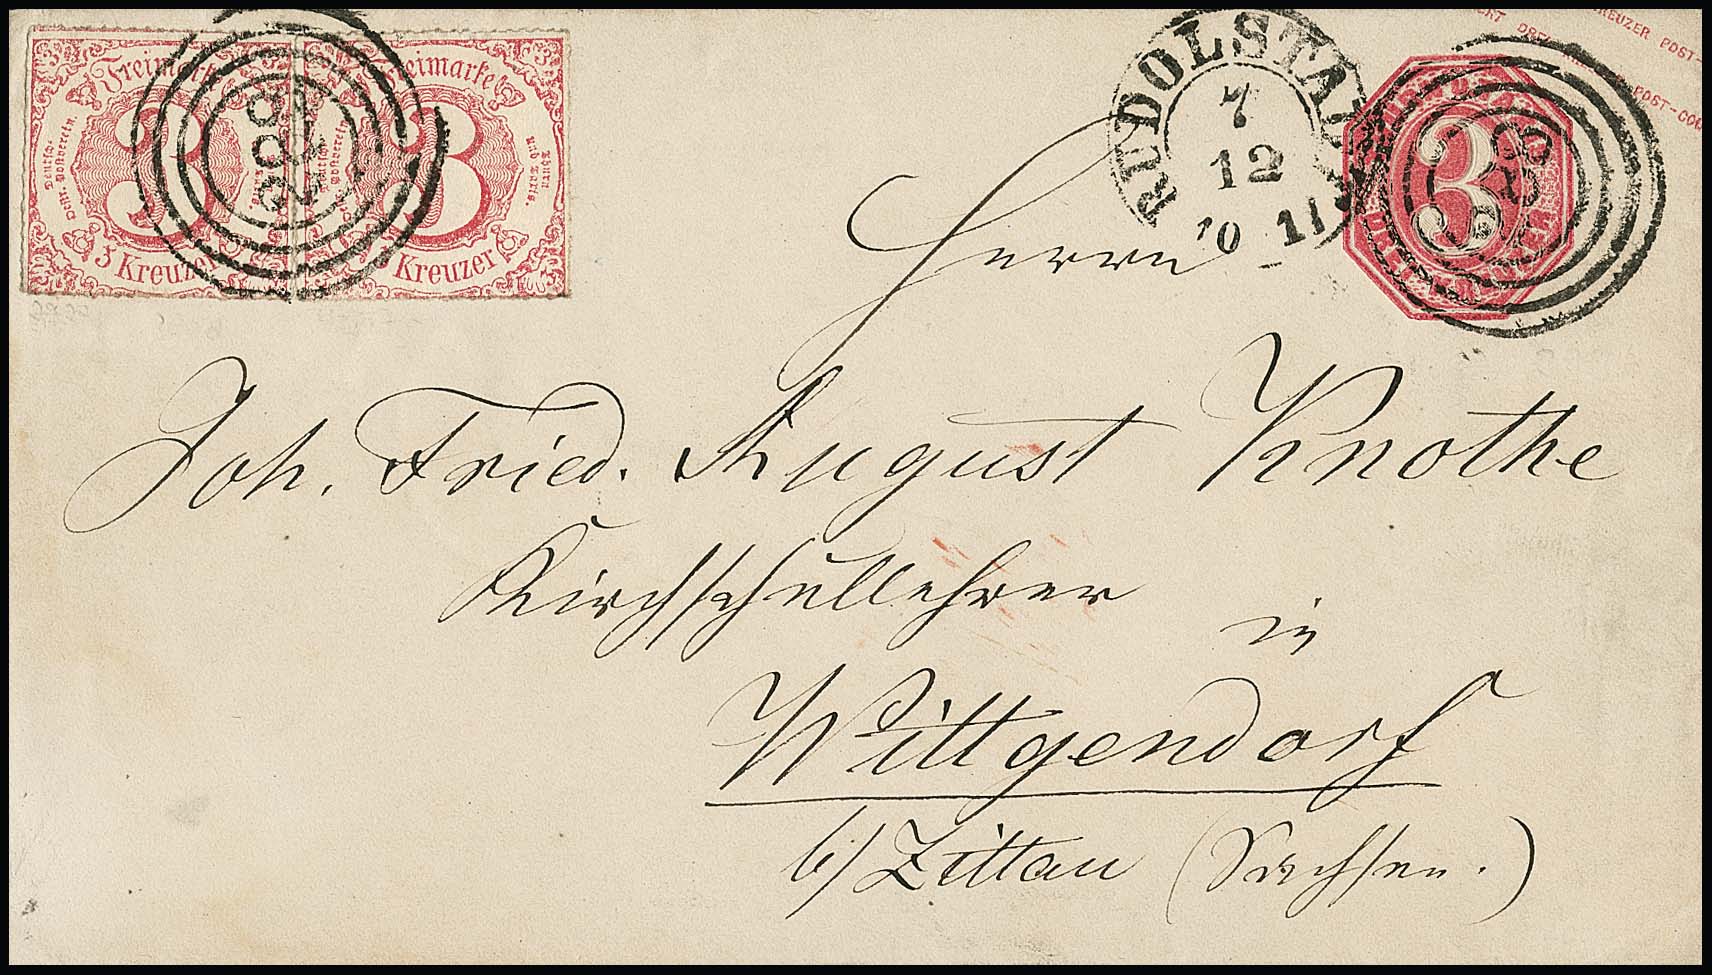 Freimarke Freimarke
3 Kreuzer 3 Kreuzer
RUDOLSTADT
7
12
10 11
3
KREUZER POST-
DREI
POST-COU
Herrn
Joh. Fried. August Knothe
Kirchschullehrer
in
Wittgendorf
b/ Zittau (Sachsen.)